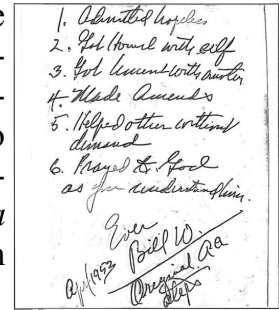 e
-
-
o
-
a
n
1. Admitted hopeless
2. Got Honest with self
3. Got honest with another
4. Made Amends
5. Helped other without
demand
6. Prayed to God
as you understand him.
Ever
Bill W.
Apr/1953
Original AA
Steps